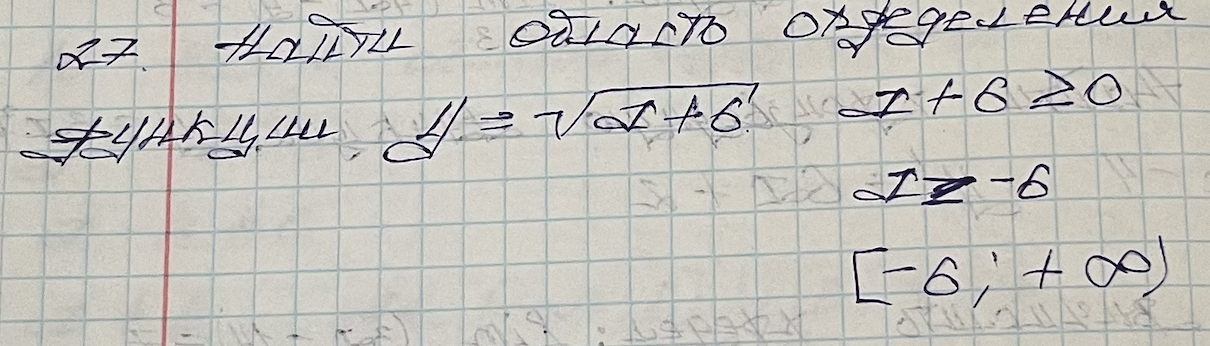 27. Найти область определения
функции y = √x+6. x + 6 ≥ 0
x ≥ -6
[-6; + ∞)